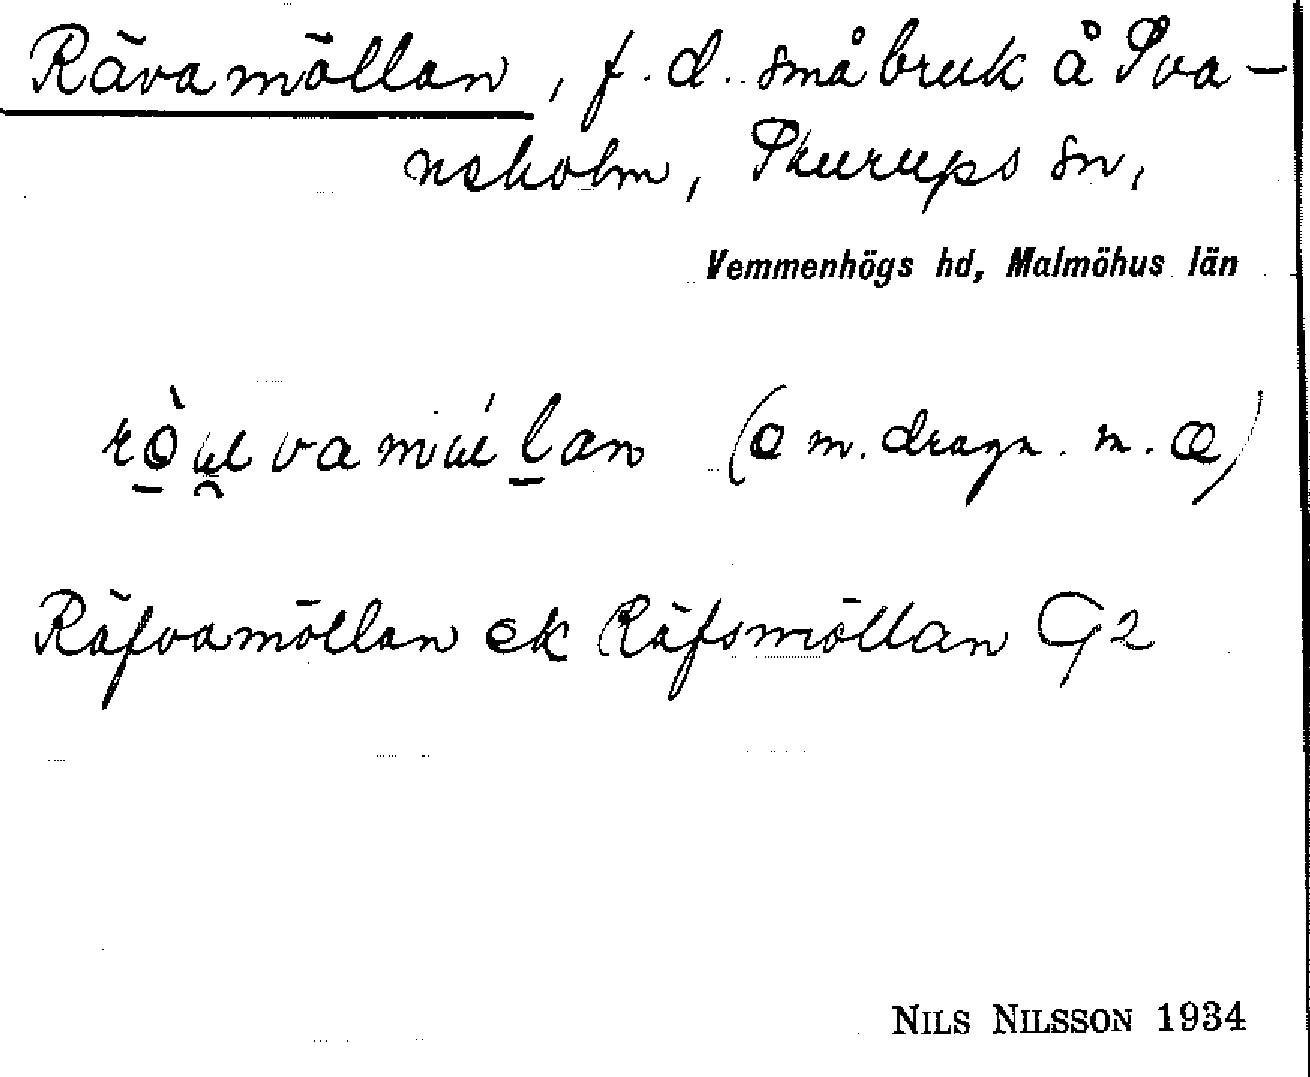 Rävamöllan, f. d. småbruk å Sva-
neholm, Skurups sn,
Vemmenhögs hd, Malmöhus län
(a m. dragn. m. æ)
Räfvamöllan ek Räfsmöllan G2
NILS NILSSON 1934